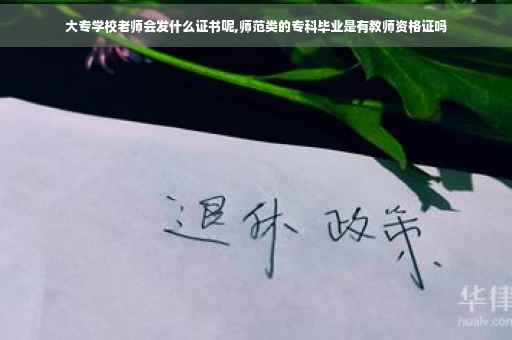 大专学校老师会发什么证书呢,师范类的专科毕业是有教师资格证吗
退休 政策
华律
hualv.com